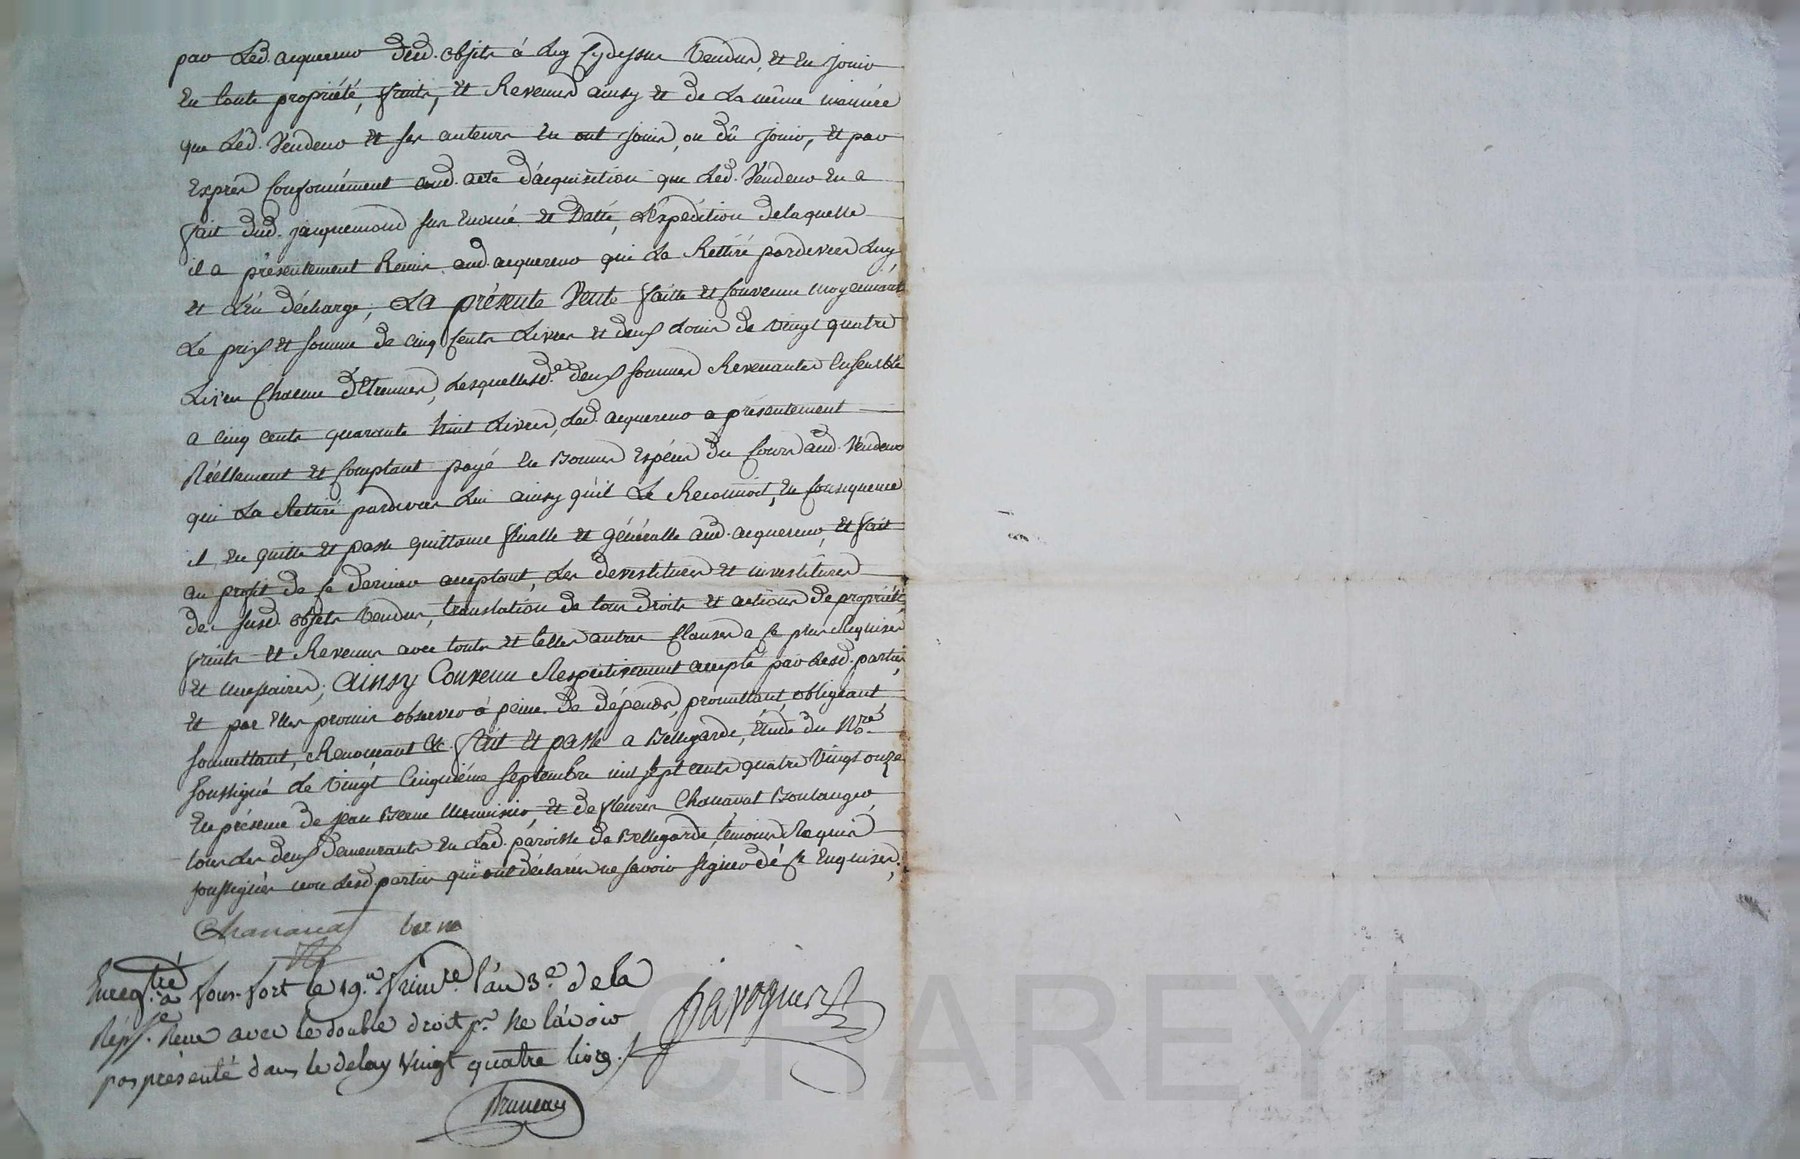 par Led. acquereur desd. objets à Luy Cydessus Vendus, et en jouir
En toute propriété, fruits, et Revenus ainsy et de La même maniere
que Led. Vendeur et ses auteurs En ont jouis, ou dû jouir, et par
Exprès Conformément aud. acte d'acquisition que Led. Vendeur En a
fait dud. jacquemond sus Enoncé et Datté, L'expédition delaquelle
il a présentement Remis aud. acquereur qui La Rettiré pardevers Luy
et L'en décharge; La présente Vente faitte et Convenue moyennant
Le prix et somme de cinq Cents Livres et deux Louis de vingt quatre
Livres Chacun d'Etrennes, Lesquellesd.es deux sommes Revenantes Ensemble
a cinq cents quarante huit Livres, Led. acquereur a présentement
Réellement et Comptant payé En Bonnes Espèces du Cours aud. Vendeur
qui La Rettiré pardevers Lui ainsy qu'il Le Reconnoit, En Conséquence
il En quitte et passe quittance finalle et généralle aud. acquereur, et fait
au profit de Ce dernier acceptant, Les devestitures et investitures
de susd. objets Vendus, translation de tous droits et actions de propriété
fruits et Revenus avec toutes et telles autres Clauses a Ce plus Requises
et necessaires; ainsy Convenu Respectivement accepté par Lesd. parties,
et par Elles promis observer à peine de dépends, promettant, obligeant
soumettant, Renonceant &c fait et passé a Bellegarde, Etude du No.re
soussigné Le Vingt Cinquième Septembre mil sept cents quatre Vingt onze
En présence de jean Berne Menuisier, et de fleury Chanavat Boulanger
tous Les deux demeurants En Lad. paroisse de Bellegarde, témoins Requis
soussignés non Lesd. parties qui ont déclarés ne savoir signer de Ce Enquises.
Chanavat berne
Enregtré à Sour fort le 19.e frimre l'an 3.e de la
Rép.e Reçu avec le double droit pr. ne l'avoir
pas présenté dans le delay Vingt quatre livs.
javoguer
Bruneau
CHAREYRON